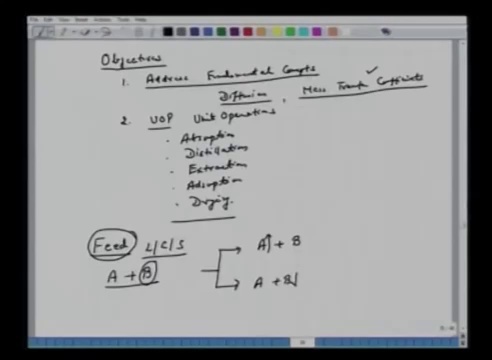 Objectives
1. Address Fundamental Concepts
Diffusion, Mass Transfer Coefficients
2. UOP Unit Operations
. Absorption
. Distillation
. Extraction
. Adsorption
. Drying.
Feed L/G/S
A + B
A↑ + B
A + B↓